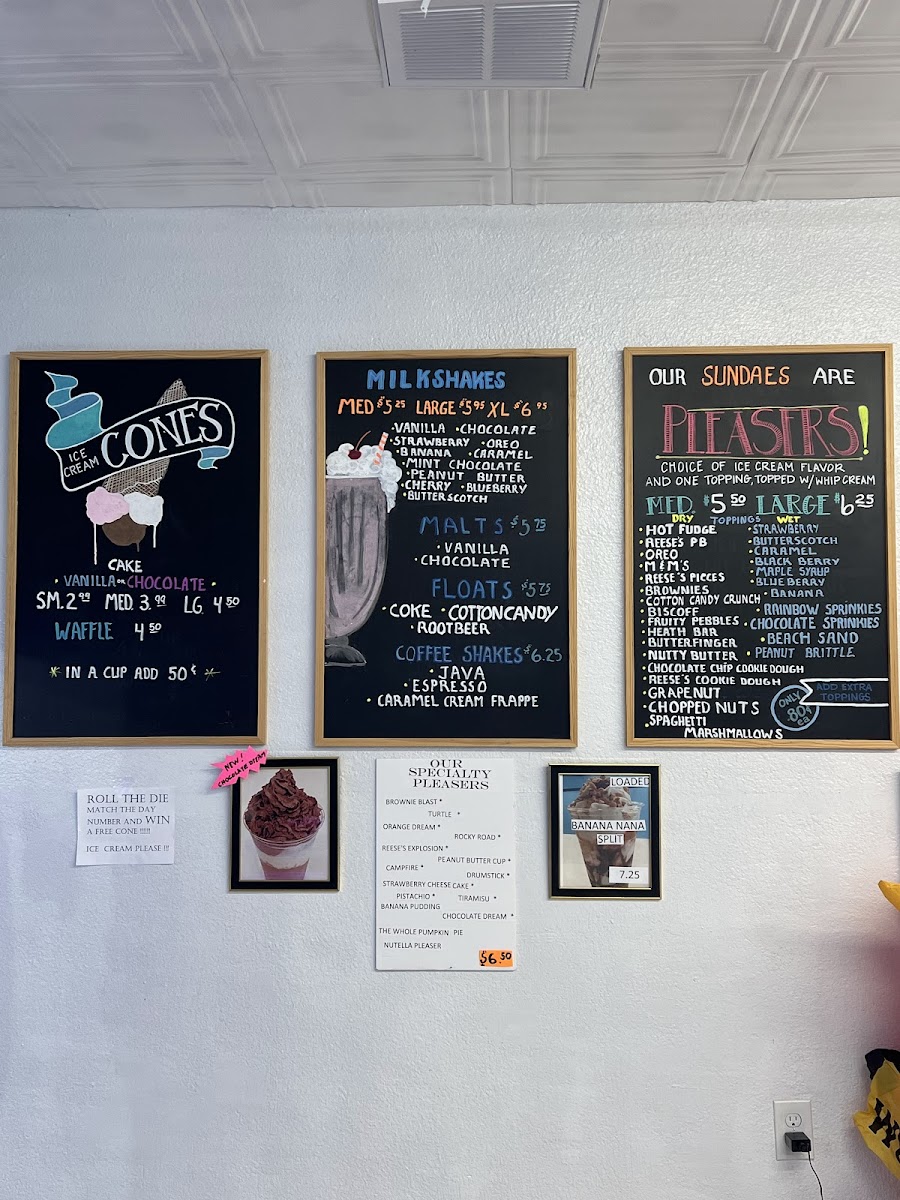 ICE CREAM CONES
CAKE
• VANILLA OR CHOCOLATE •
SM. 2.99 MED. 3.99 LG. 4.50
WAFFLE 4.50
* IN A CUP ADD 50¢ *
MILKSHAKES
MED $5.25 LARGE $5.95 XL $6.95
• VANILLA • CHOCOLATE
• STRAWBERRY • OREO
• BANANA • CARAMEL
• MINT CHOCOLATE
• PEANUT BUTTER
• CHERRY • BLUEBERRY
• BUTTERSCOTCH
MALTS $5.75
• VANILLA
• CHOCOLATE
FLOATS $5.75
• COKE • COTTON CANDY
• ROOTBEER
COFFEE SHAKES $6.25
• JAVA
• ESPRESSO
• CARAMEL CREAM FRAPPE
OUR SUNDAES ARE
PLEASERS!
CHOICE OF ICE CREAM FLAVOR
AND ONE TOPPING, TOPPED W/ WHIP CREAM
MED. $5.50 LARGE $6.25
DRY TOPPINGS WET
• HOT FUDGE
• REESE'S PB
• OREO
• M&M'S
• REESE'S PIECES
• BROWNIES
• COTTON CANDY CRUNCH
• BISCOFF
• FRUITY PEBBLES
• HEATH BAR
• BUTTERFINGER
• NUTTY BUTTER
• CHOCOLATE CHIP COOKIE DOUGH
• REESE'S COOKIE DOUGH
• GRAPENUT
• CHOPPED NUTS
• SPAGHETTI
MARSHMALLOWS
• STRAWBERRY
• BUTTERSCOTCH
• CARAMEL
• BLACK BERRY
• MAPLE SYRUP
• BLUE BERRY
• BANANA
• RAINBOW SPRINKIES
• CHOCOLATE SPRINKIES
• BEACH SAND
• PEANUT BRITTLE
ONLY
80¢
ea
ADD EXTRA
TOPPINGS
NEW!
CHOCOLATE DREAM
ROLL THE DIE
MATCH THE DAY
NUMBER AND WIN
A FREE CONE !!!!!
ICE CREAM PLEASE !!!
OUR
SPECIALTY
PLEASERS
BROWNIE BLAST *
TURTLE *
ORANGE DREAM *
ROCKY ROAD *
REESE'S EXPLOSION *
PEANUT BUTTER CUP *
CAMPFIRE *
DRUMSTICK *
STRAWBERRY CHEESE CAKE *
PISTACHIO *
TIRAMISU *
BANANA PUDDING
CHOCOLATE DREAM *
THE WHOLE PUMPKIN PIE
NUTELLA PLEASER
$6.50
LOADED
BANANA NANA
SPLIT
7.25